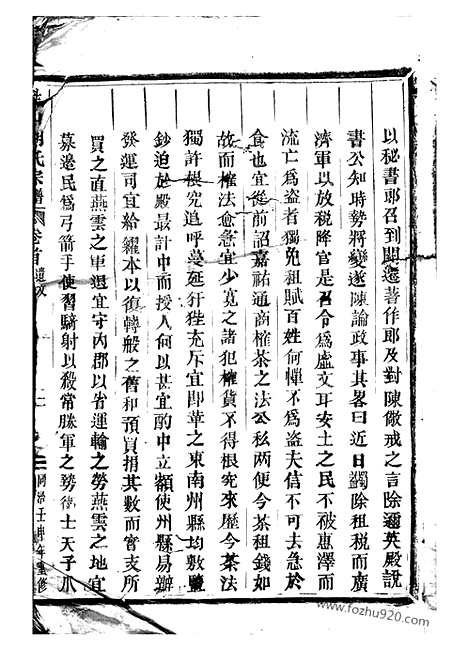 以秘書郎召到闕遷著作郎及對陳儆戒之言除邇英殿說
書公知時勢將變遂陳論政事其畧曰近日蠲除租税而廣
濟軍以放税降官是召令爲虛文耳安土之民不被惠澤而
流亡爲盗者獨免租賦百姓何憚不爲盗夫信不可去急於
食也宜從前詔嘉祐通商榷茶之法公私兩便今茶租錢如
故而榷法愈急宜少寬之諸犯榷貨不得根究來歷今茶法
獨許根究追呼蔓延犴狴充斥宜即革之東南州縣均敷鹽
鈔迫於殿最計口而授人何以甚宜酌中立額使州縣易辦
發運司宜給糴本以復轉般之舊和預買損其數而實支所
買之直燕雲之軍退宜守內郡以省運輸之勞燕雲之地宜
募邊民爲弓箭手使習騎射以殺常勝軍之勢衛士天子爪
氏宗譜
卷首
同治壬申年重修
www.fozhu920.com